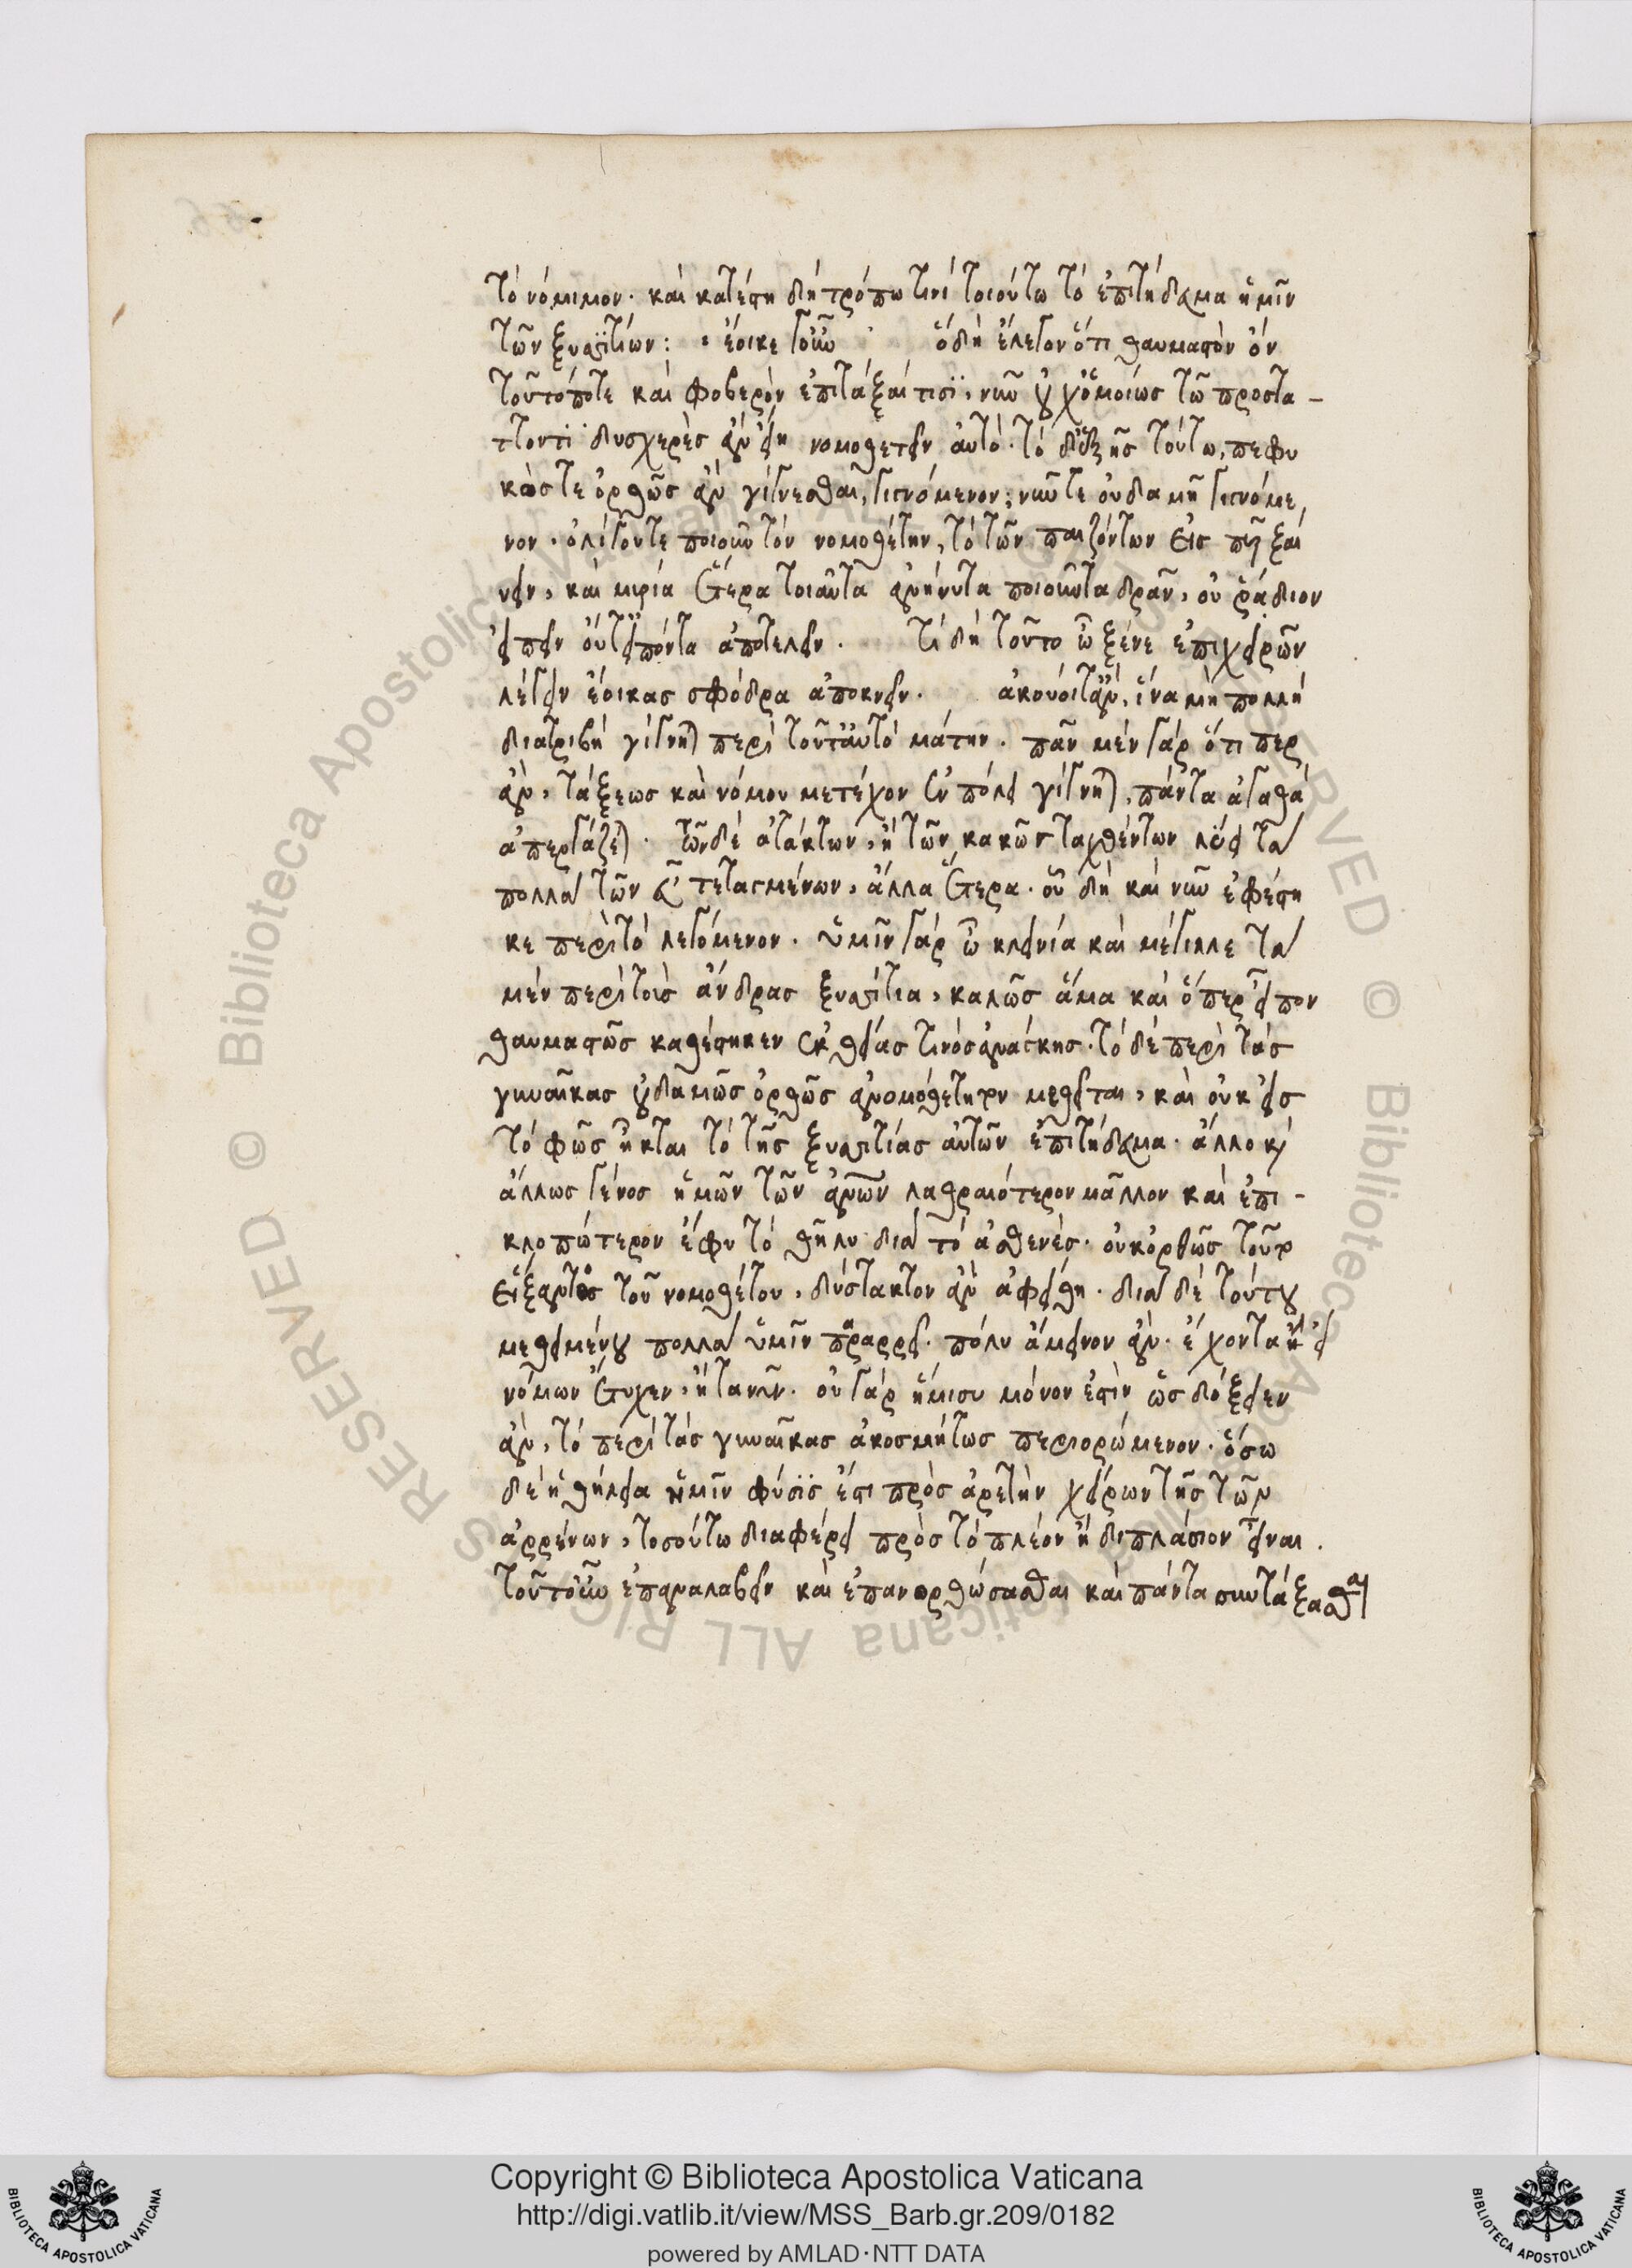 τὸ νόμιμον· καὶ κατέστη δὴ τρόπω τινὶ τοιούτω τὸ ἐπιτήδευμα ἡμῖν
τῶν ξυσσιτίων: ἔοικε γοῦν ὃ δὴ ἔλεγον ὅτι θαυμαστὸν ὂν
τοῦτό ποτε καὶ φοβερὸν ἐπιτάξαί τισϊ, νῦν οὐχ ὁμοίως τῶ προστά-
ττοντϊ δυσχερὲς ἂν εἴη νομοθετεῖν αὐτό· τὸ δ' ἑξῆς τούτω, πεφυ
κώς τε ὀρθῶς ἂν γίγνεσθαι, γιγνόμενον, νῦν τε οὐδαμῆ γιγνόμε
νον· ὀλίγου τε ποιοῦν τὸν νομοθέτην, τὸ τῶν παιζόντων εἰς πῦρ ξαί
νειν, καὶ μυρία ἕτερα τοιαῦτα ἀνήνυτα ποιοῦντα δρᾶν, οὐ ῥάδιον
εἰπεῖν οὔτ' εἰπόντα ἀποτελεῖν. τί δὴ τοῦτο ὦ ξένε ἐπιχειρῶν
λέγειν ἔοικας σφόδρα ἀποκνεῖν. ἀκούοιτ' ἂν, ἵνα μὴ πολλὴ
διατριβὴ γίγνηται περὶ τοῦτ' αὐτὸ μάτην. πᾶν μὲν γὰρ ὅτι περ
ἂν, τάξεως καὶ νόμου μετέχον ἐν πόλει γίγνηται, πάντα ἀγαθὰ
ἀπεργάζεται. τῶν δὲ ἀτάκτων, ἢ τῶν κακῶς ταχθέντων λύει τὰ
πολλὰ τῶν εὖ τεταγμένων, ἄλλα ἕτερα. οὗ δὴ καὶ νῦν ἐφέστη
κε περὶ τὸ λεγόμενον. ὑμῖν γὰρ ὦ κλεινία καὶ μέγιλλε τὰ
μὲν περὶ τοὺς ἄνδρας ξυσσίτια, καλῶς ἅμα καὶ ὅπερ εἶπον
θαυμαστῶς καθέστηκεν ἐκ θείας τινὸς ἀνάγκης. τὸ δὲ περὶ τὰς
γυναῖκας οὐδαμῶς ὀρθῶς ἀνομοθέτητον μεθεῖται, καὶ οὐκ εἰς
τὸ φῶς ἦκται τὸ τῆς ξυσσιτίας αὐτῶν ἐπιτήδευμα. ἀλλ' ὃ καὶ
ἄλλως γένος ἡμῶν τῶν ἀνθρώπων λαθραιότερον μᾶλλον καὶ ἐπι-
κλοπώτερον ἔφυ τὸ θῆλυ διὰ τὸ ἀσθενές. οὐκ ὀρθῶς τοῦτο
εἴξαντος τοῦ νομοθέτου, δύστακτον ὂν ἀφείθη. διὰ δὲ τούτου
μεθειμένου πολλὰ ὑμῖν παρέρρει. πολὺ ἄμεινον ἂν ἔχοντα ἢ εἰ
νόμων ἔτυχεν, ἢ τὰ νῦν. οὐ γὰρ ἥμισυ μόνον ἐστὶν ὡς δόξειεν
ἂν, τὸ περὶ τὰς γυναῖκας ἀκοσμήτως περιορώμενον. ὅσω
δὲ ἡ θήλεια ἡμῖν φύσϊς ἐστι πρὸς ἀρετὴν χείρων τῆς τῶν
ἀρρένων, τοσούτω διαφέρει πρὸς τὸ πλέον ἢ διπλάσιον εἶναι.
τοῦτ' οὖν ἐπαναλαβεῖν καὶ ἐπανορθώσασθαι καὶ πάντα συντάξασθαι
Copyright © Biblioteca Apostolica Vaticana
http://digi.vatlib.it/view/MSS_Barb.gr.209/0182
powered by AMLAD·NTT DATA